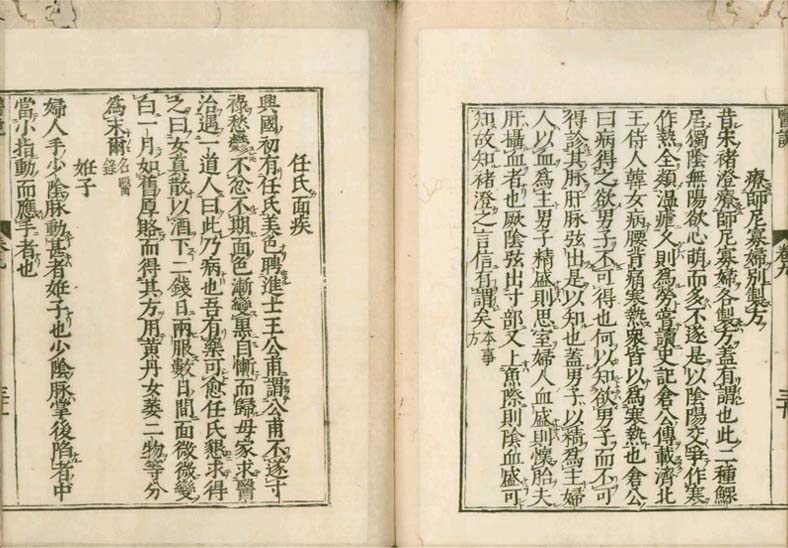 醫說
卷九
三十
療師尼寡婦別製方
昔宋褚澄療師尼寡婦各製方蓋有謂也此二種鰥
居獨陰無陽欲心萌而多不遂是以陰陽交爭作寒
作熱全類溫瘧久則為勞嘗讀史記倉公傳載濟北
王侍人韓女病腰背痛寒熱衆皆以為寒熱也倉公
曰病得之欲男子不可得也何以知欲男子而不可
得診其脉肝脉弦出是以知也蓋男子以精為主婦
人以血為主男子精盛則思室婦人血盛則懷胎夫
肝攝血者也厥陰弦出寸部又上魚際則陰血盛可
知故知褚澄之言信有謂矣本事方
任氏面疾
興國初有任氏美色聘進士王公甫謂公甫不遂寸
祿愁鬱不忿不期面色漸變黑自慚而歸母家求醫
治遇一道人曰此乃病也吾有藥可愈任氏懇求得
之曰女真散以酒下二錢日兩服數日間面微微變
白一月如舊厚賂而得其方用黃丹女萎二物等分
為末爾名醫錄
妊子
婦人手少陰脉動甚者妊子也少陰脉掌後陷者中
當小指動而應手者也
卷九